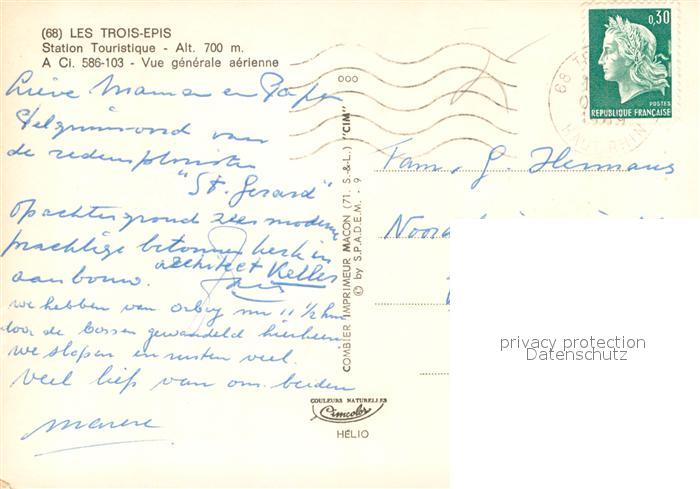 (68) LES TROIS-EPIS
Station Touristique - Alt. 700 m.
A Ci. 586-103 - Vue générale aérienne
Lieve Maman en Papa
van
de redemptoristen
"St. Gerard"
op achtergrond zeer moderne
prachtige betonnen kerk in
aanbouw. architect Keller
we hebben van Orbey nu 11 1/2 km
door de bossen gewandeld hierheen
we slapen en rusten veel.
Veel liefs van ons beiden
COMBIER IMPRIMEUR MACON (71. S.-&-L.) "CIM"
© by S.P.A.D.E.M. - 9
000
0,30
POSTES
REPUBLIQUE FRANÇAISE
68
HAUT RHIN
Fam. G. Hermans
COULEURS NATURELLES
Cimcolor
HÉLIO
privacy protection
Datenschutz